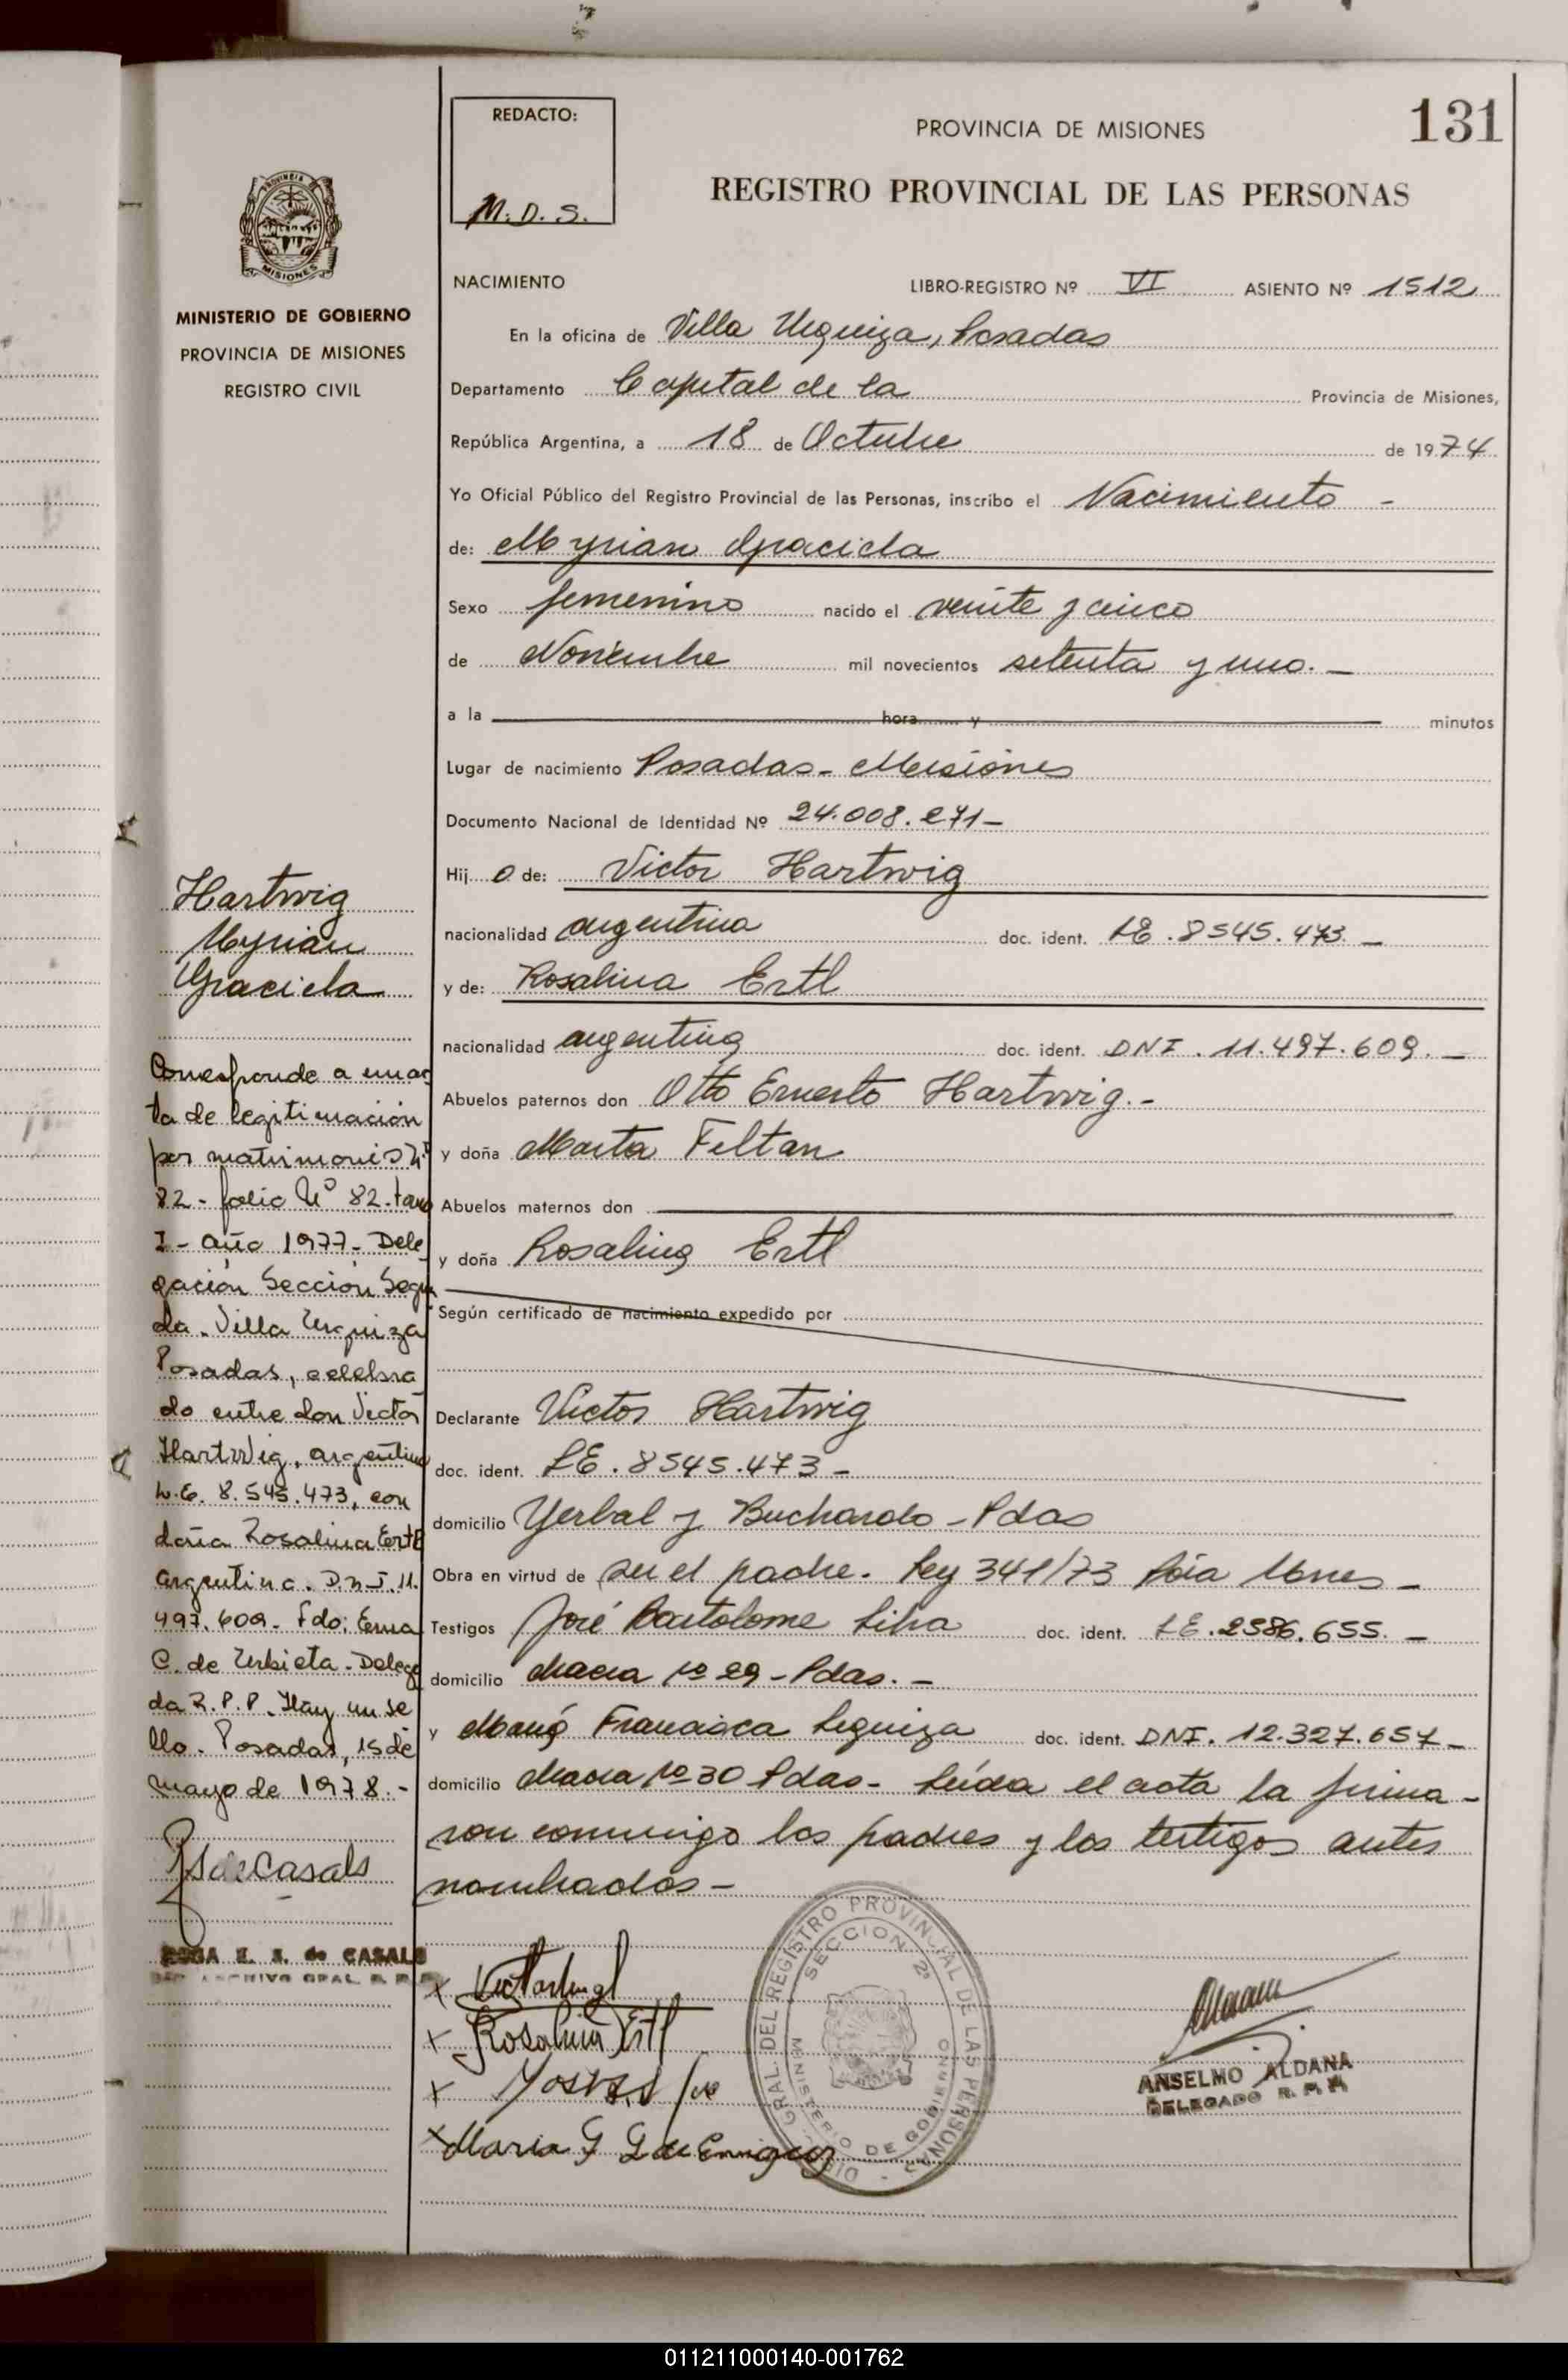 131
REDACTO:
M. D. S.
PROVINCIA DE MISIONES
REGISTRO PROVINCIAL DE LAS PERSONAS
PROVINCIA
MISIONES
MINISTERIO DE GOBIERNO
PROVINCIA DE MISIONES
REGISTRO CIVIL
NACIMIENTO LIBRO-REGISTRO Nº VI ASIENTO Nº 1512
En la oficina de Villa Urquiza, Posadas
Departamento Capital de la Provincia de Misiones,
República Argentina, a 18 de Octubre de 1974.
Yo Oficial Público del Registro Provincial de las Personas, inscribo el Nacimiento -
de: Myrian Graciela
Sexo femenino nacido el veinte y cinco
de Noviembre mil novecientos setenta y uno. -
a la hora y minutos
Lugar de nacimiento Posadas - Misiones
Documento Nacional de Identidad Nº 24.008.271 -
Hij o de: Victor Hartwig
nacionalidad argentina doc. ident. LE. 8545.473. -
y de: Rosalina Ertl
nacionalidad argentina doc. ident. DNI. 11.497.609. -
Abuelos paternos don Otto Ernesto Hartwig. -
y doña Marta Feltan
Abuelos maternos don
y doña Rosalina Ertl
Según certificado de nacimiento expedido por
Declarante Victor Hartwig
doc. ident. LE. 8545.473 -
domicilio Yerbal y Buchardo - Pdas
Obra en virtud de ser el padre. Ley 341/73 Pcia Mnes -
Testigos José Bartolome Silva doc. ident. LE. 2586.655. -
domicilio Chacra Nº 29 - Pdas. -
y María Francisca Leguiza doc. ident. DNI. 12.327.657 -
domicilio Chacra Nº 30 Pdas - Leída el acta la firma-
ron conmigo los padres y los testigos antes
nombrados -
Hartwig
Myrian
Graciela
Corresponde a un ac
ta de legitimación
por matrimonio Nº
82 - folio Nº 82 - tomo
I - año 1977 - Dele
gación Sección Segun
da. Villa Urquiza
Posadas, celebra
do entre don Victor
Hartwig, argentino
L.E. 8.545.473, con
doña Rosalina Ertl
argentina. D.N.I. 11.
497.609. Fdo: Ema
C. de Urbieta - Delega
da R.P.P. Hay un se
llo. Posadas, 15 de
mayo de 1978. -
de Casals
E. S. de CASALS
ARCHIVO GRAL. R. P. P.
Rosalina Ertl
Maria F L de Enriquez
DIR. GRAL. DEL REGISTRO PROVINCIAL DE LAS PERSONAS
SECCION 2ª
MINISTERIO DE GOBIERNO
ANSELMO ALDANA
DELEGADO R. P. P.
011211000140-001762